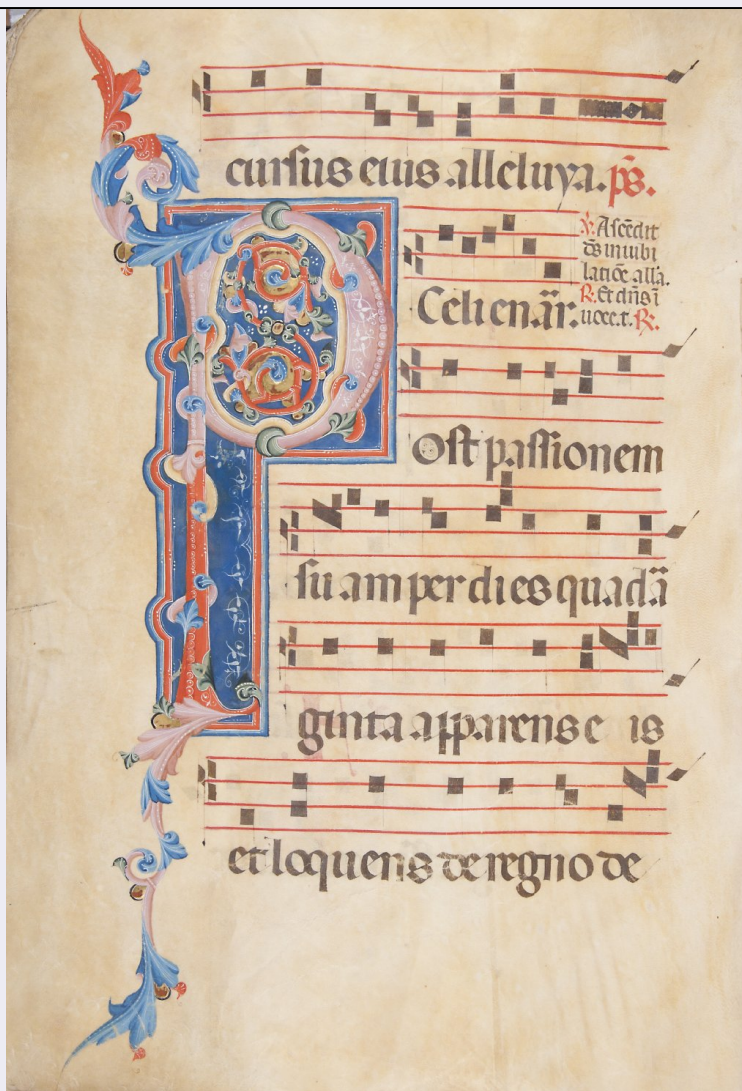 cursus eius alleluya. ps̄.
Celi enar̄:
℣. Ascēdit
dš in iubi
latiōe alla.
℟. Et dn̄s ī
uoce.t. ℟.
Post passionem
suam per dies quadā
ginta apparens eis
et loquens de regno de